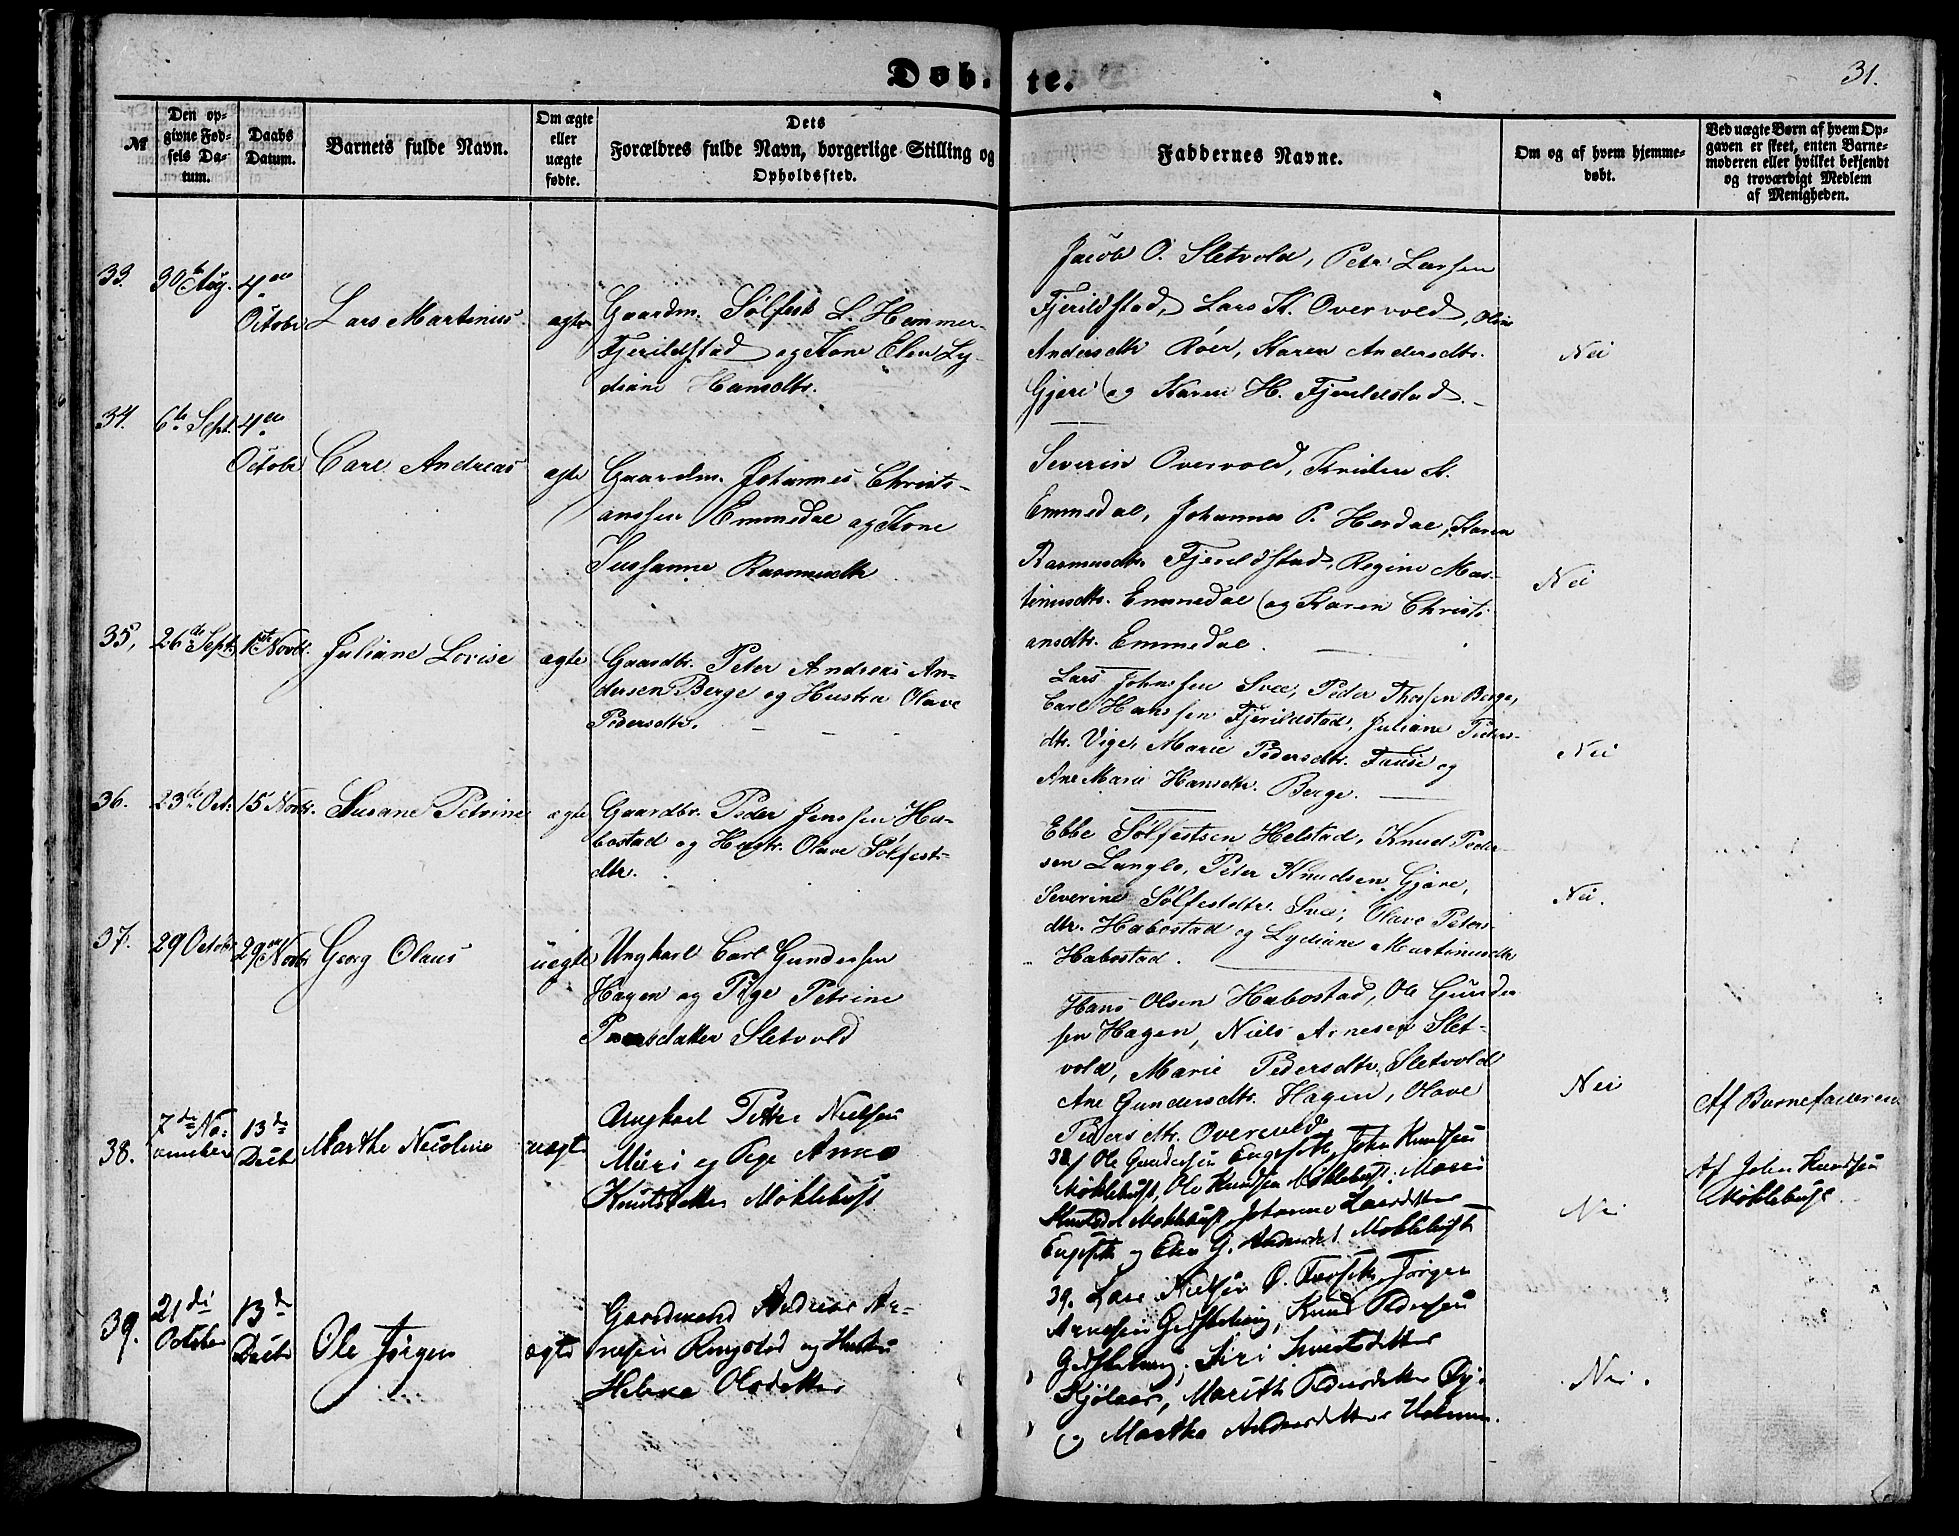 Døb-
te.
31.
№
Den op-
givne Fød-
sels Da-
tum.
Daabs
Datum.
Barnets fulde Navn.
Om ægte
eller
uægte
fødte.
Dets
Forældres fulde Navn, borgerlige Stilling og
Opholdssted.
Faddernes Navne.
Om og af hvem hjemme-
døbt.
Ved uægte Børn af hvem Op-
gaven er skeet, enten Barne-
moderen eller hvilket bekjendt
og troværdigt Medlem
af Menigheden.
33.
30te Aug.
4de
Octobr
Lars Martinus
ægte
Gaardm. Sølfest L. Hemmer-
Fjerildstad og Kone Elen Ly-
diane Hansdtr.
Jacob O. Sletvold, Petr Larsen
Fjerildstad, Lars K. Overvold, Oline
Andersdtr Röer, Karen Andersdtr.
Gjære og Karen H. Fjerildstad.
Nei
34.
6te Sept.
4de
Octobr
Carl Andreas
ægte
Gaardm. Johannes Christi-
anssen Emmedal og Kone
Sussanne Rasmusdtr
Severin Overvold,
Emmedal, Johannes P. Herdal, Karen
Rasmusdtr. Fjerildstad, Regine Mar-
tinusdtr. Emmedal og Karen Christi-
ansdtr. Emmedal.
Nei
35.
26de Sept.
1ste Novbr.
Juliane Lovise
ægte
Gaardbr. Peter Andreas An-
dersen Berge og Hustru Olave
Pedersdtr.
Lars Johnssen Svee, Peder Thorsen Berge,
Carl Hanssen Fjerildstad, Juliane Peders-
dtr. Vige, Marie Pedersdtr. og
Ane Marie Hansdtr. Berge.
Nei
36.
23de Oct.
15 Novbr.
Susane Petrine
ægte
Gaardbr. Peder Jenssen Ha-
bostad og Hustr. Olave Sølfests-
dtr.
Ebbe Sølfestsen Helstad, Knud Peder-
sen Langlo, Peter Knudsen Gjære,
Severine Sølfestdtr. Svee, Olave Peters-
dtr. Habostad og Lydiane Martinusdtr
Habostad.
Nei.
37.
29 Octobr
29de Novbr
Georg Olaus
uægte
Ungkarl Carl Gundersen
Hagen og Pige Petrine
Pedersdatter Sletvold
Hans Olsen Habostad, Ole Gunder-
sen Hagen, Niels Arnesen Slet-
vold, Marie Pedersdtr. Sletvold
Ane Gundersdtr. Hagen, Olave
Pedersdtr. Overvold
Nei
Af Barnefaderen
38.
7de No-
vember
13de
Decbr
Marthe Nicoline
uægte
Ungkarl Petter Nielsen
Muri og Pige Anne
Knutsdatter Möklebust
38/ Ole Gundersen Engeset, John Knudsen
Möklebust, Ole Knudsen Möklebust, Mari
Knutsdtr Möklebust, Johanne Larsdatter
Engeset og Elen G. Möklebust
Nei
Af John Knudsen
Möklebust
39.
21de
October
13de
Decbr
Ole Jørgen
ægte
Gaardmand Andreas Ar-
nesen Ringstad og Hustru
Helene Olsdatter
39. Lars Nielsen Jørgen
Arnesen Knud Pedersen
Siri Sivertsdatter
Marith Pedersdatter
og Martha Andersdatter
Nei.